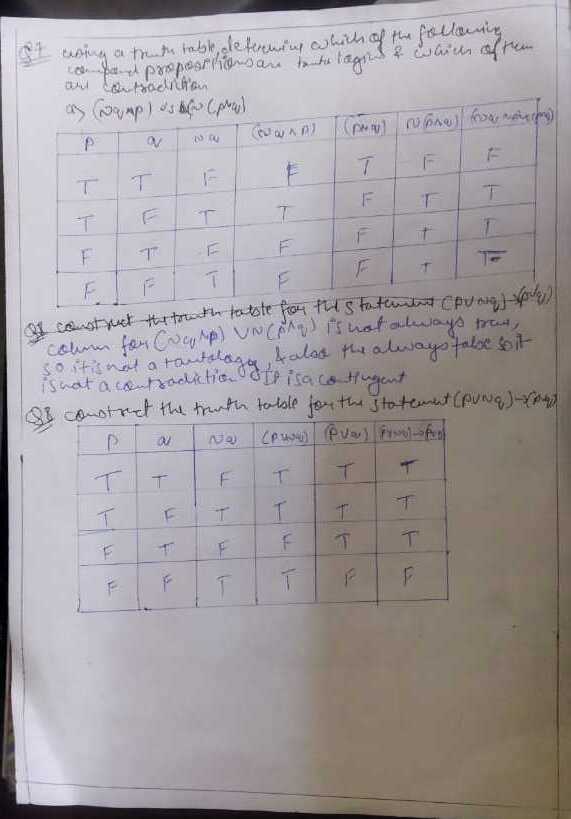 Q7 using a truth table, determine which of the following
compound propositions are tautologies & which of them
are contradiction
a> (~q∧p) ∨ ~(p∧q)
p q ~q (~q∧p) (p∧q) ~(p∧q) (~q∧p)∨~(p∧q)
T T F F T F F
T F T T F T T
F T F F F T T
F F T F F T T
Q8 construct the truth table for the statement (p∨~q)→(p∨q)
column for (~q∧p) ∨~(p∧q) is not always true,
so it is not a tautology, & also the always false so it
is not a contradiction It is a contingent
Q8 construct the truth table for the statement (p∨~q)→(p∨q)
p q ~q (p∨~q) (p∨q) (p∨~q)→(p∨q)
T T F T T T
T F T T T T
F T F F T T
F F T T F F